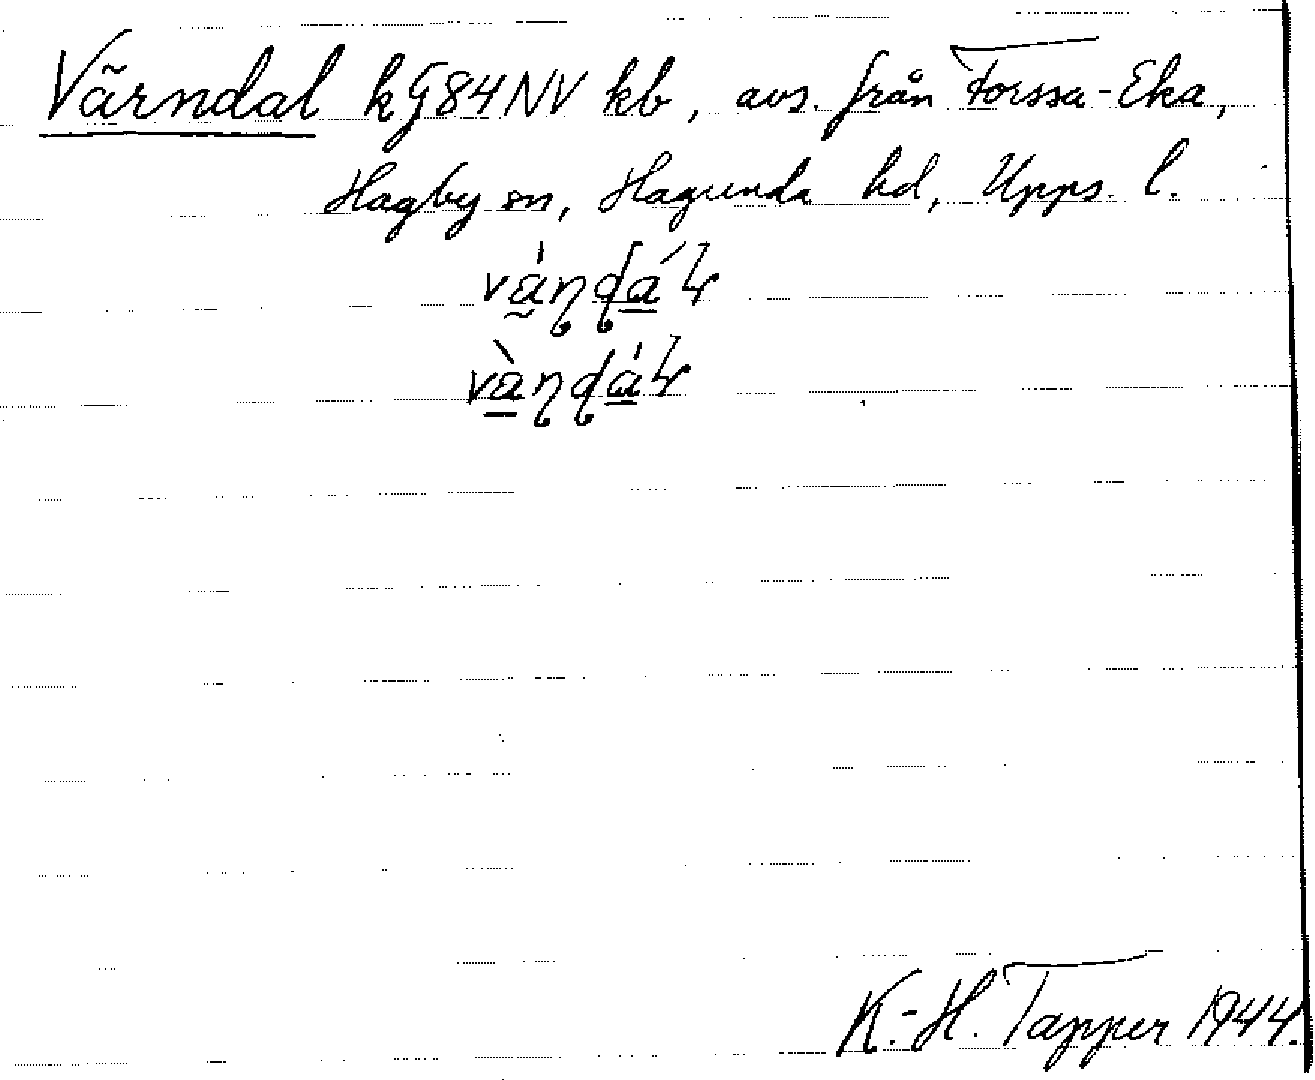 Värndal kG84NV kb, avs. från Forssa-Eka,
Hagby sn, Hagunda hd, Upps. l.
K.-H. Tapper 1944.